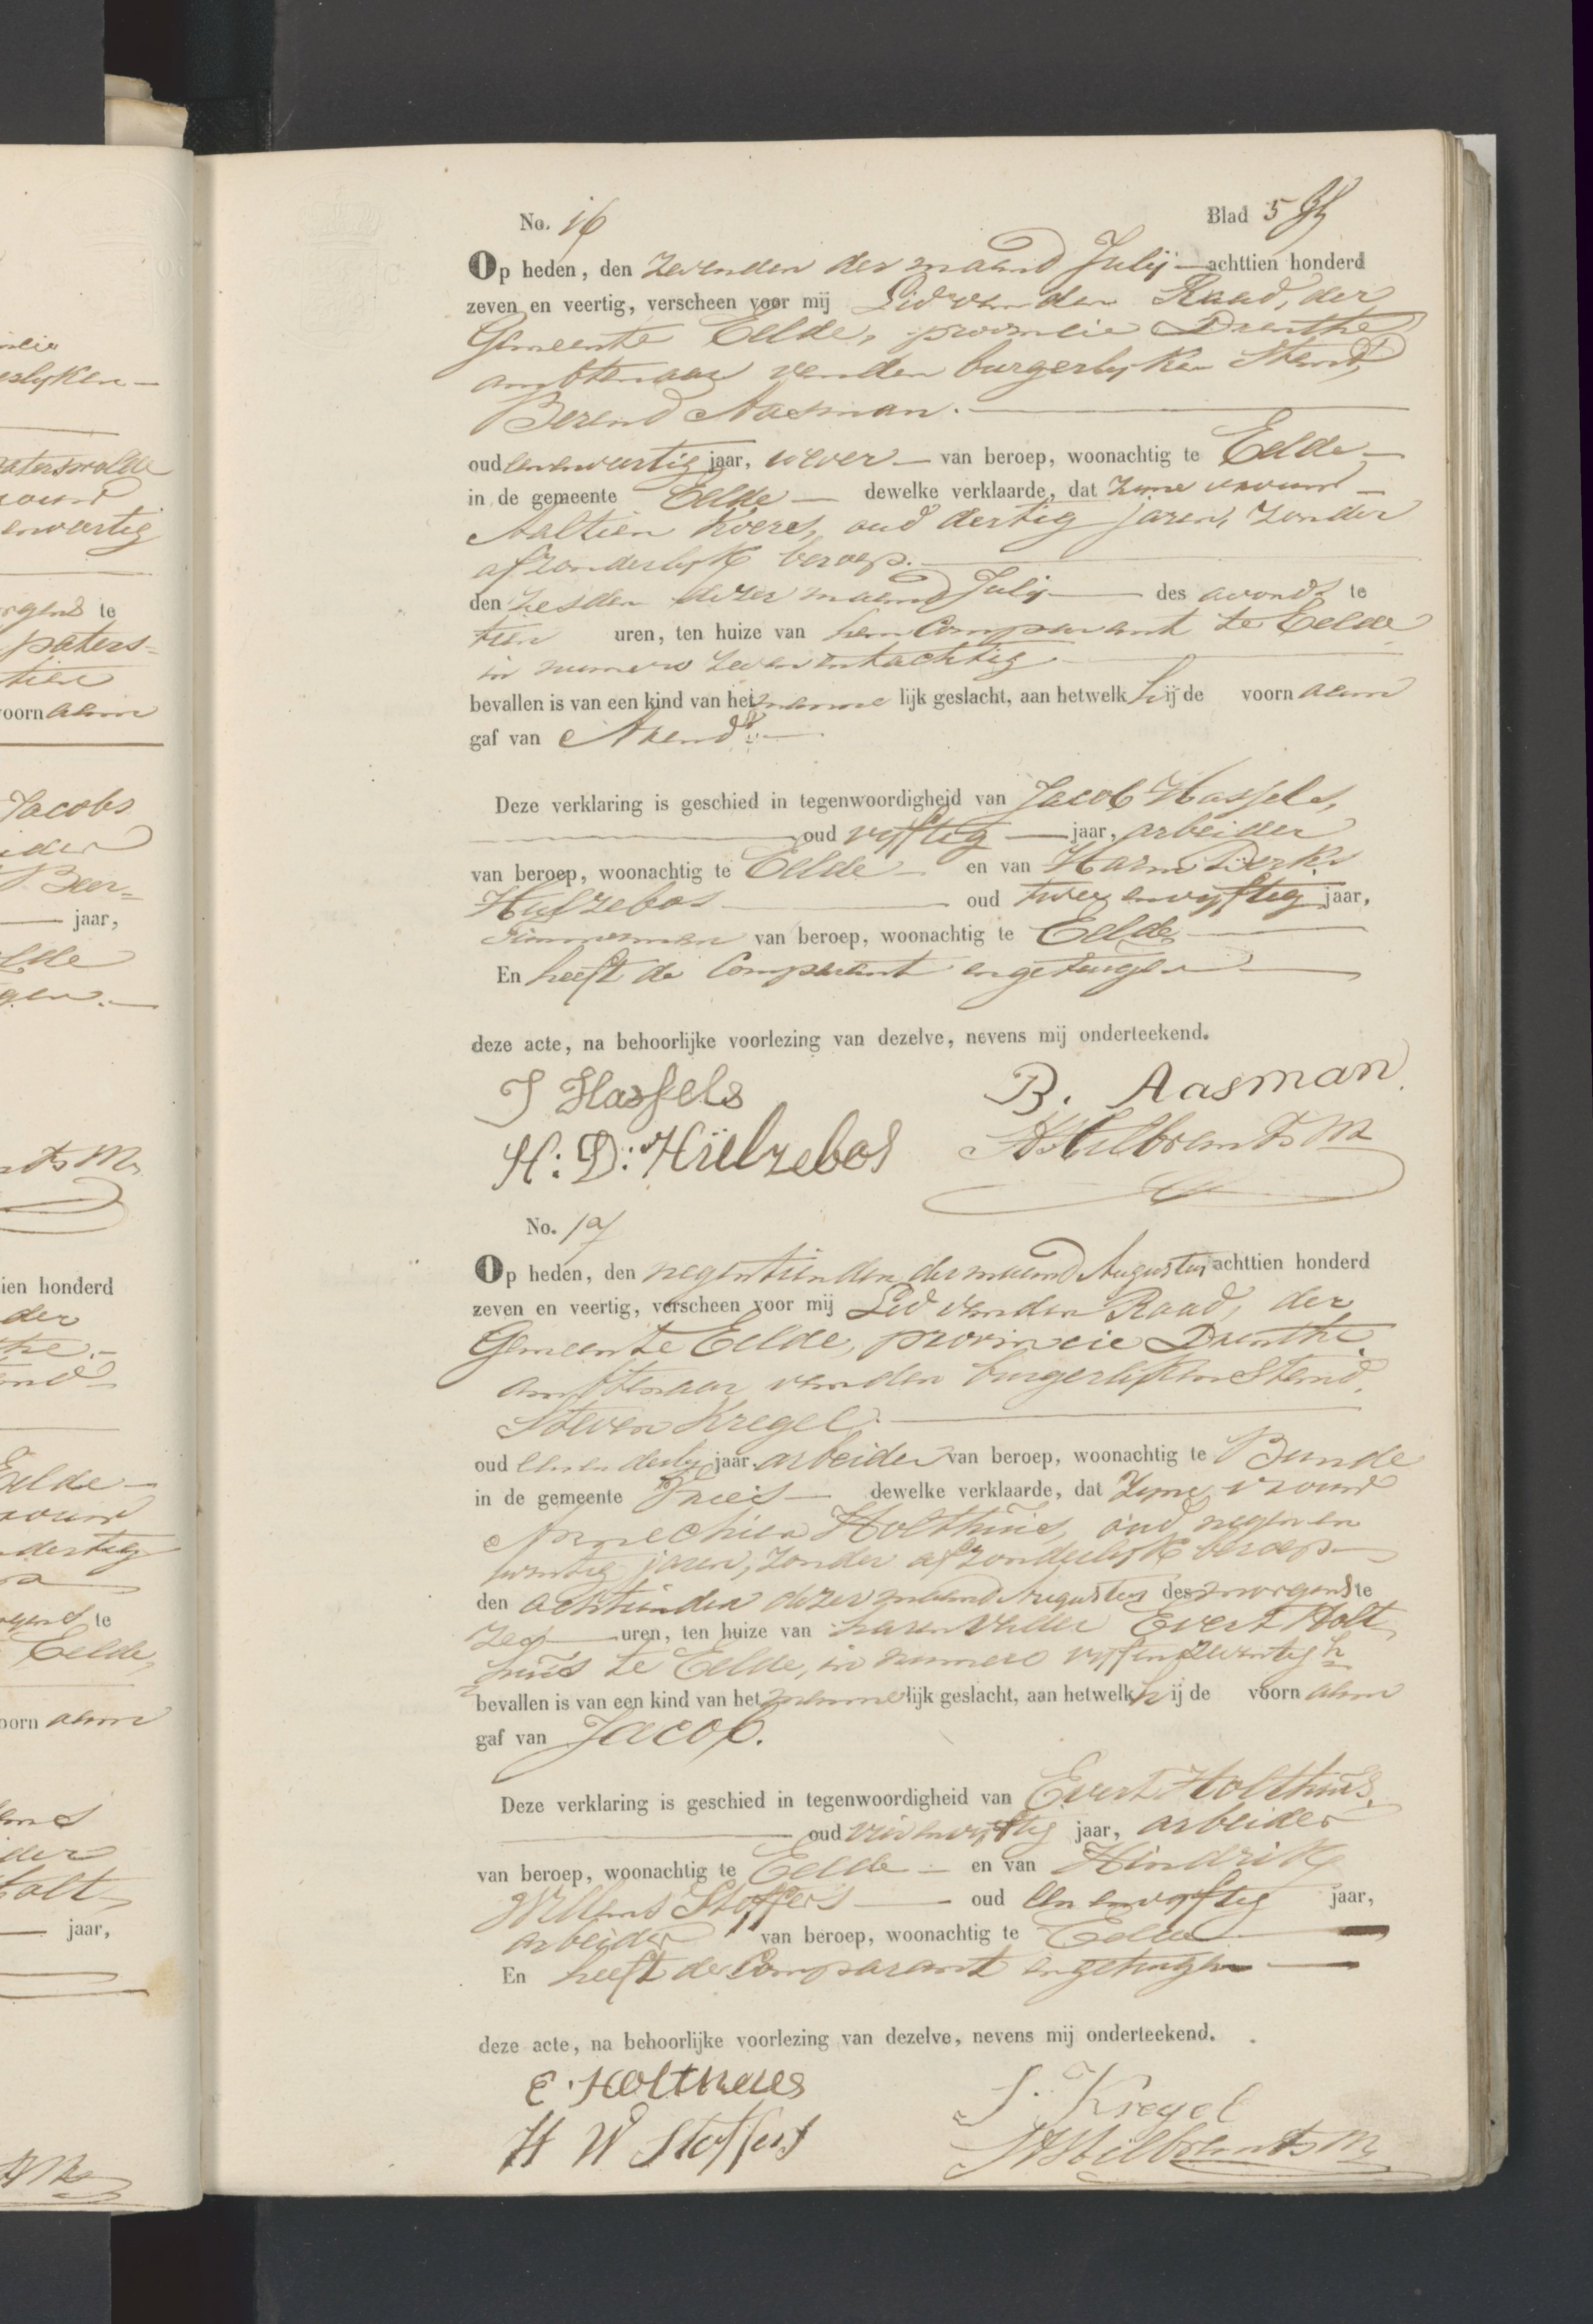 No. 16 Blad 5
Op heden, den zevenden der maand Julij achttien honderd
zeven en veertig, verscheen voor mij Lid van den Raad, der
Gemeente Eelde, provincie Drenthe
ambtenaar van den burgerlyken Stand,
Berend Aasman.
oud jaar, wever van beroep, woonachtig te Eelde
in de gemeente Eelde dewelke verklaarde, dat zyne vrouw
Aaltien Koers, oud dertig jaren, zonder
afzonderlyk beroep.
den zesden dezer maand Julij des avonds te
tien uren, ten huize van hem Comparant te Eelde
in numero zevenentachtig
bevallen is van een kind van het manne lijk geslacht, aan hetwelk hij de voornaam
gaf van Arend.
Deze verklaring is geschied in tegenwoordigheid van Jacob Hassels,
oud vyftig jaar, arbeider
van beroep, woonachtig te Eelde en van Harm Derks
Hulzebos oud twee envyftig jaar,
Timmerman van beroep, woonachtig te Eelde
En heeft de Comparant en getuigen
deze acte, na behoorlijke voorlezing van dezelve, nevens mij onderteekend.
J Hassels B. Aasman
H: D: Hülzebos
No. 17
Op heden, den negentienden der maand Augustus achttien honderd
zeven en veertig, verscheen voor mij Lid van den Raad, der
Gemeente Eelde, provincie Drenthe.
ambtenaar van den burgerlyken Stand,
Steven Kregel.
oud een en dertig jaar, arbeider van beroep, woonachtig te Bunde
in de gemeente Vries dewelke verklaarde, dat zyne vrouw
Annechien Holthuis, oud negen en
twintig jaren, zonder afzonderlyk beroep
den achttienden dezer maand Augustus des morgens te
zes uren, ten huize van haren Vader Evert Holt
huis te Eelde, in numero vyfenzeventig
bevallen is van een kind van het mannelijk geslacht, aan hetwelk hij de voornaam
gaf van Jacob.
Deze verklaring is geschied in tegenwoordigheid van Evert Holthuis,
oud jaar, arbeider
van beroep, woonachtig te Eelde en van Hindrik
Willems Stoffers oud een envyftig jaar,
arbeider van beroep, woonachtig te Eelde
En heeft de Comparant en getuigen
deze acte, na behoorlijke voorlezing van dezelve, nevens mij onderteekend.
E. Holthues S. Kregel
H W Stoffers